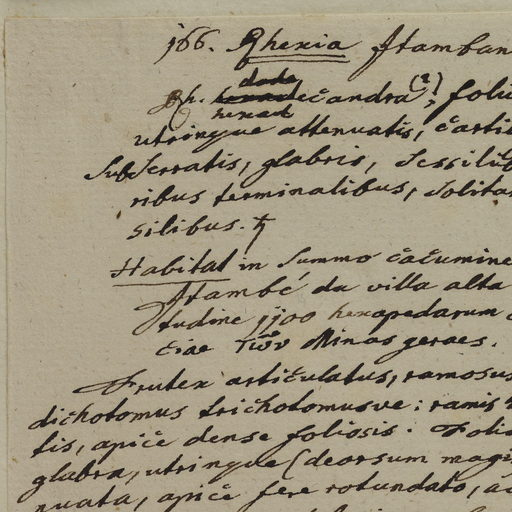 166. Rhexia Itamban
dode
Rh. decandra (2), foliis
henead
utrinque attenuatis, carti
subserratis, glabris, sessilib
ribus terminalibus, solitar
silibus. ♄
Habitat in summo cacumine
Itambé da villa alta
tudine 1100 hexapedarum
ciae τῶν Minas geraes.
Frutex articulatus, ramosus
dichotomus trichotomusve: ramis
tis, apice dense foliosis. Folia
glabra, utrinque (deorsum magis
nuata, apice fere rotundato, ac